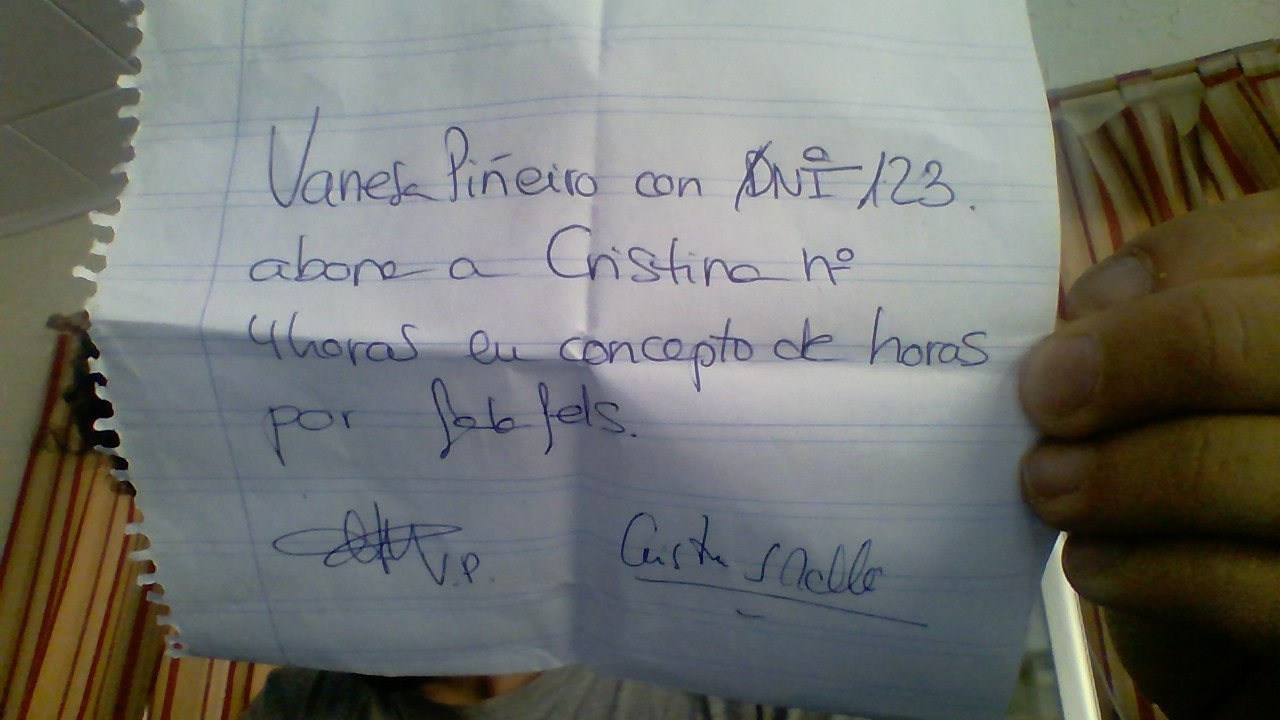 Vanesa Piñeiro con DNI nº 123.
abona a Cristina nº
4 horas en concepto de horas
por falafels.
V.P.